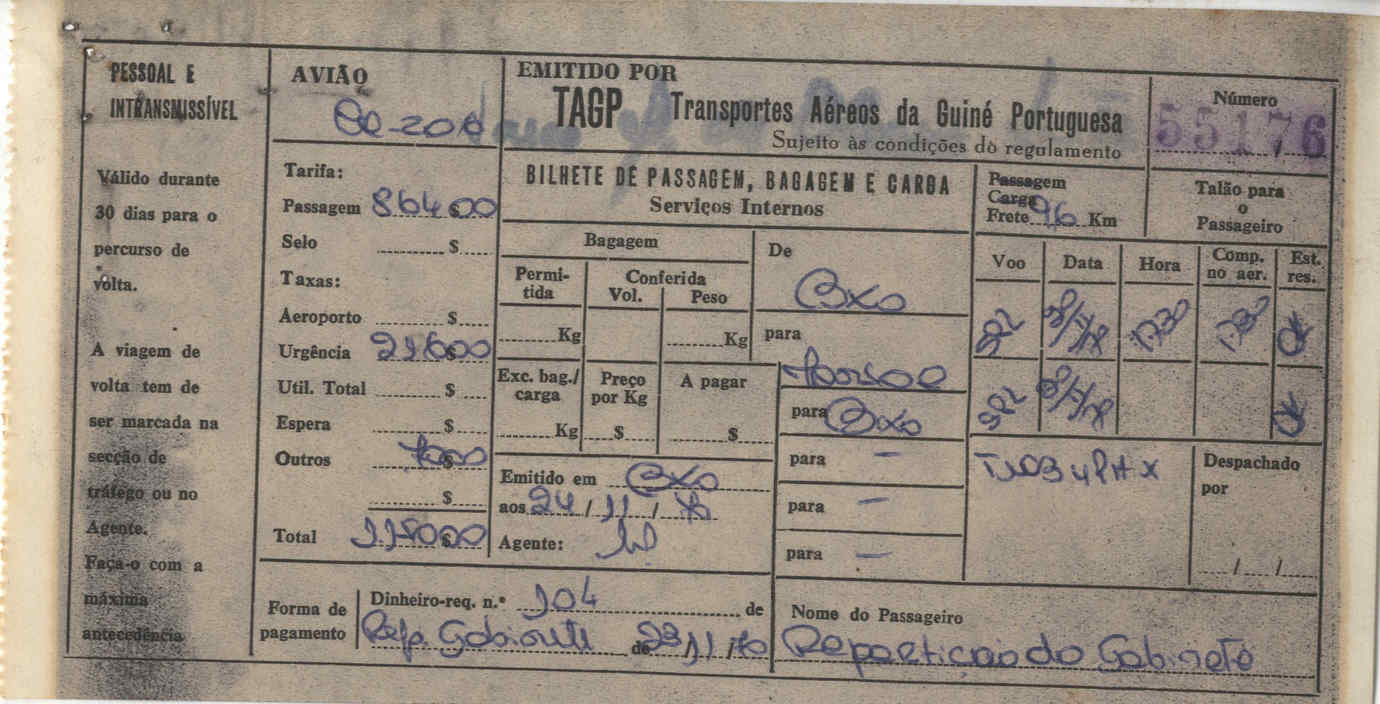 PESSOAL E
INTRANSMISSÍVEL
Válido durante
30 dias para o
percurso de
volta.
A viagem de
volta tem de
ser marcada na
secção de
tráfego ou no
Agente.
Faça-o com a
máxima
antecedência
AVIÃO
Tarifa:
Passagem 864$00
Selo $
Taxas:
Aeroporto $
Urgência $
Util. Total $
Espera $
Outros $
$
Total $
EMITIDO POR
TAGP Transportes Aéreos da Guiné Portuguesa
Sujeito às condições do regulamento
Número
55176
BILHETE DE PASSAGEM, BAGAGEM E CARGA
Serviços Internos
Passagem
Carga
Frete 96 Km
Talão para
o
Passageiro
Bagagem
Permi-
tida
Conferida
Vol. Peso
Kg Kg
Exc. bag./
carga
Preço
por Kg
A pagar
Kg $ $
De
BXO
para
para BXO
para —
para —
para —
Voo Data Hora Comp.
no aer. Est.
res.
1730 OK
OK
Despachado
por
/ /
Emitido em BXO
aos 24 / 11 / 70
Agente:
Forma de
pagamento
Dinheiro-req. n.º 104 de
Rep. Gabinete de 23/11/70
Nome do Passageiro
Repartição do Gabinete